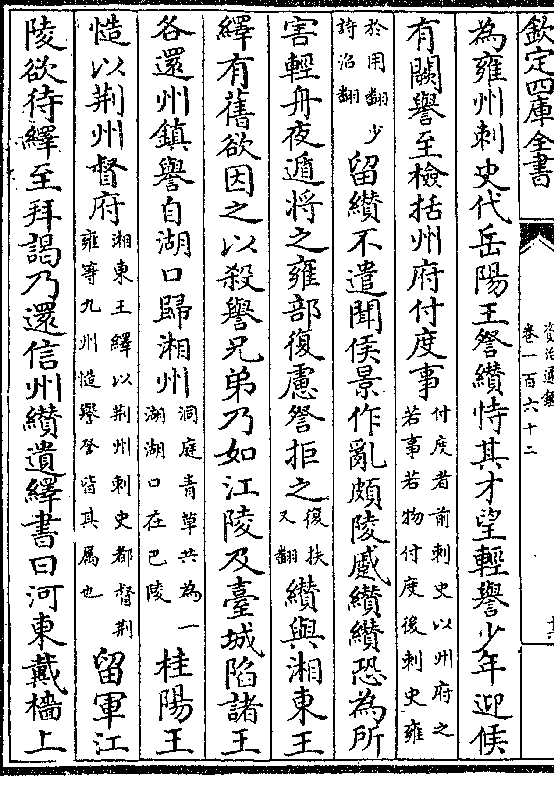 欽定四庫全書
資治通鑑
卷一百六十二
為雍州刺史代岳陽王詧纘恃其才望輕譽少年迎候
有闕譽至檢括州府付度事付度者前刺史以州府之若事若物付度後刺史雍
於用翻少詩沼翻留纘不遣聞侯景作亂頗陵蹙纘纘恐為所
害輕舟夜遁將之雍部復慮詧拒之復扶又翻纘與湘東王
繹有舊欲因之以殺譽兄弟乃如江陵及臺城陷諸王
各還州鎮譽自湖口歸湘州洞庭青草共為一湖湖口在巴陵桂陽王
慥以荆州督府湘東王繹以荆州刺史都督荆雍等九州慥譽詧皆其屬也留軍江
陵欲待繹至拜謁乃還信州纘遺繹書曰河東戴檣上